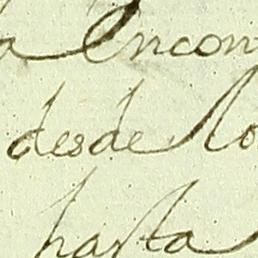 a Encon
desde lo
hasta